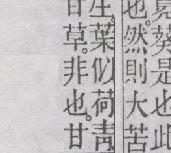 葵是也此
也。然則大苦
生。葉似荷青
甘草。非也。甘